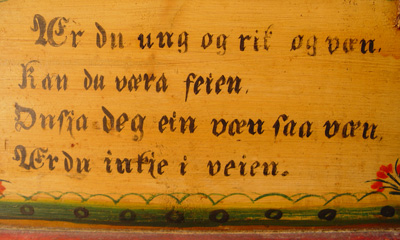 Er du ung og rik og væn.
Kan du væra feien.
Onsja deg ein væn saa væn.
Er du intje i veien.